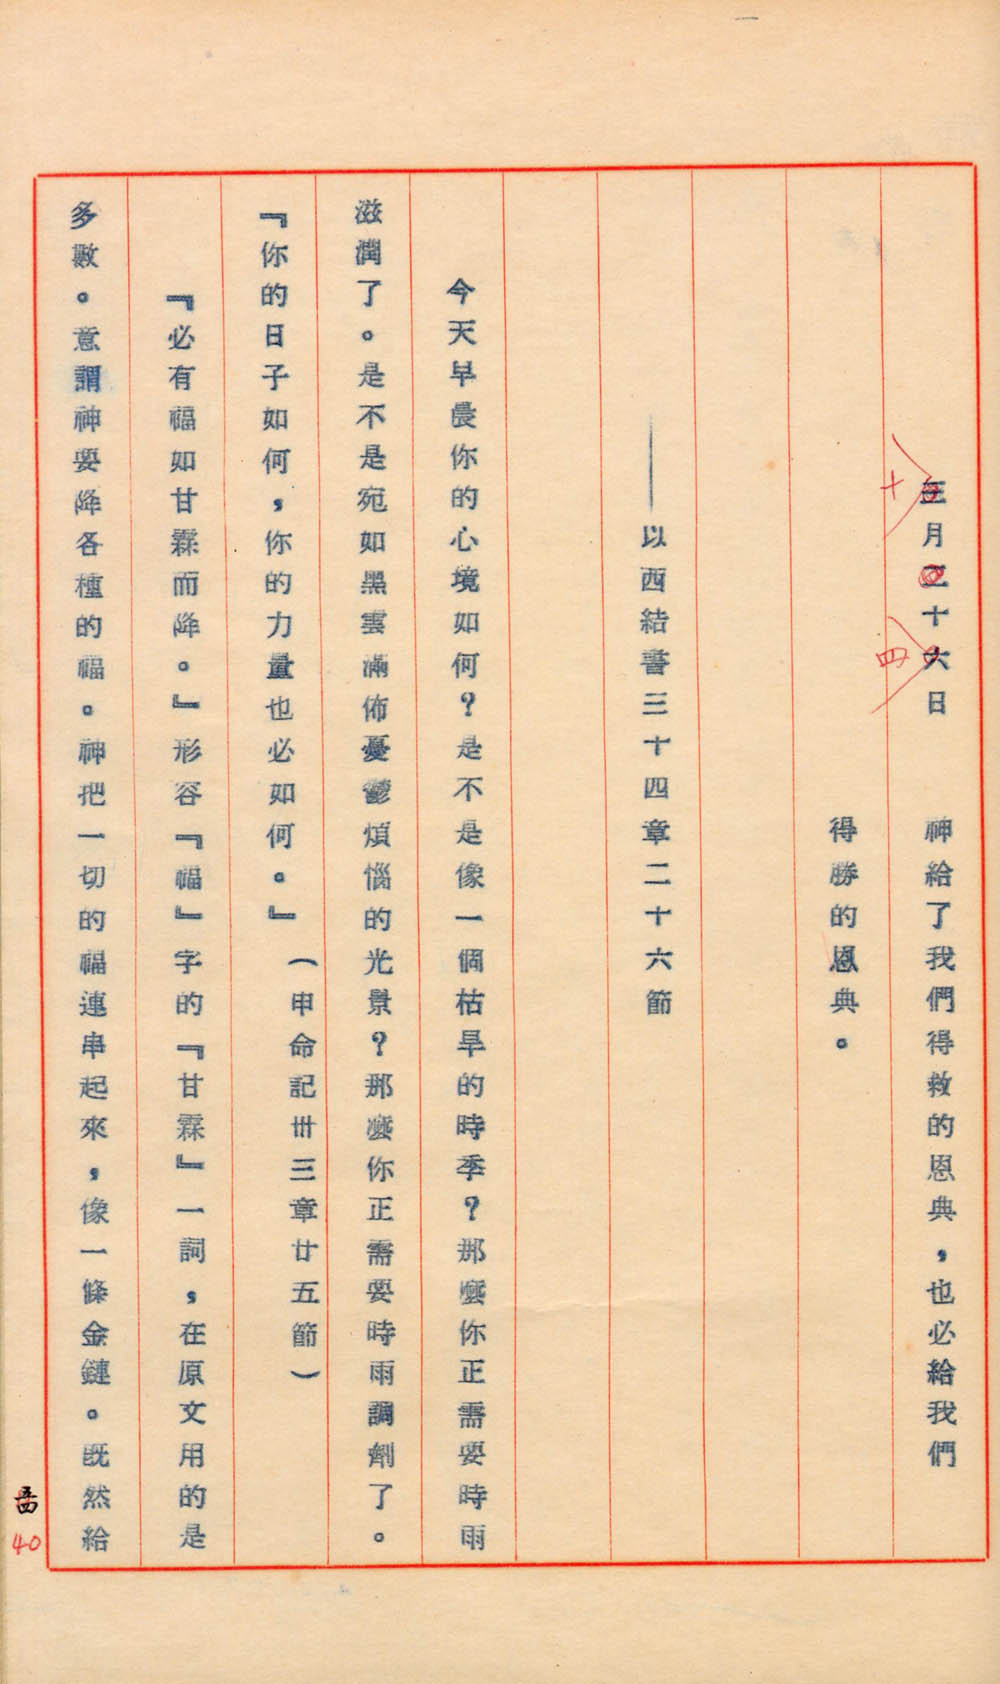 三月二十六日　神給了我們得救的恩典，也必給我們
十
四
得勝的恩典。
——以西結書三十四章二十六節
今天早晨你的心境如何？是不是像一個枯旱的時季？那麼你正需要時雨
滋潤了。是不是宛如黑雲滿佈憂鬱煩惱的光景？那麼你正需要時雨調劑了。
『你的日子如何，你的力量也必如何。』（申命記卅三章廿五節）
『必有福如甘霖而降。』形容『福』字的『甘霖』一詞，在原文用的是
多數。意謂神要降各種的福。神把一切的福連串起來，像一條金鏈。既然給
40